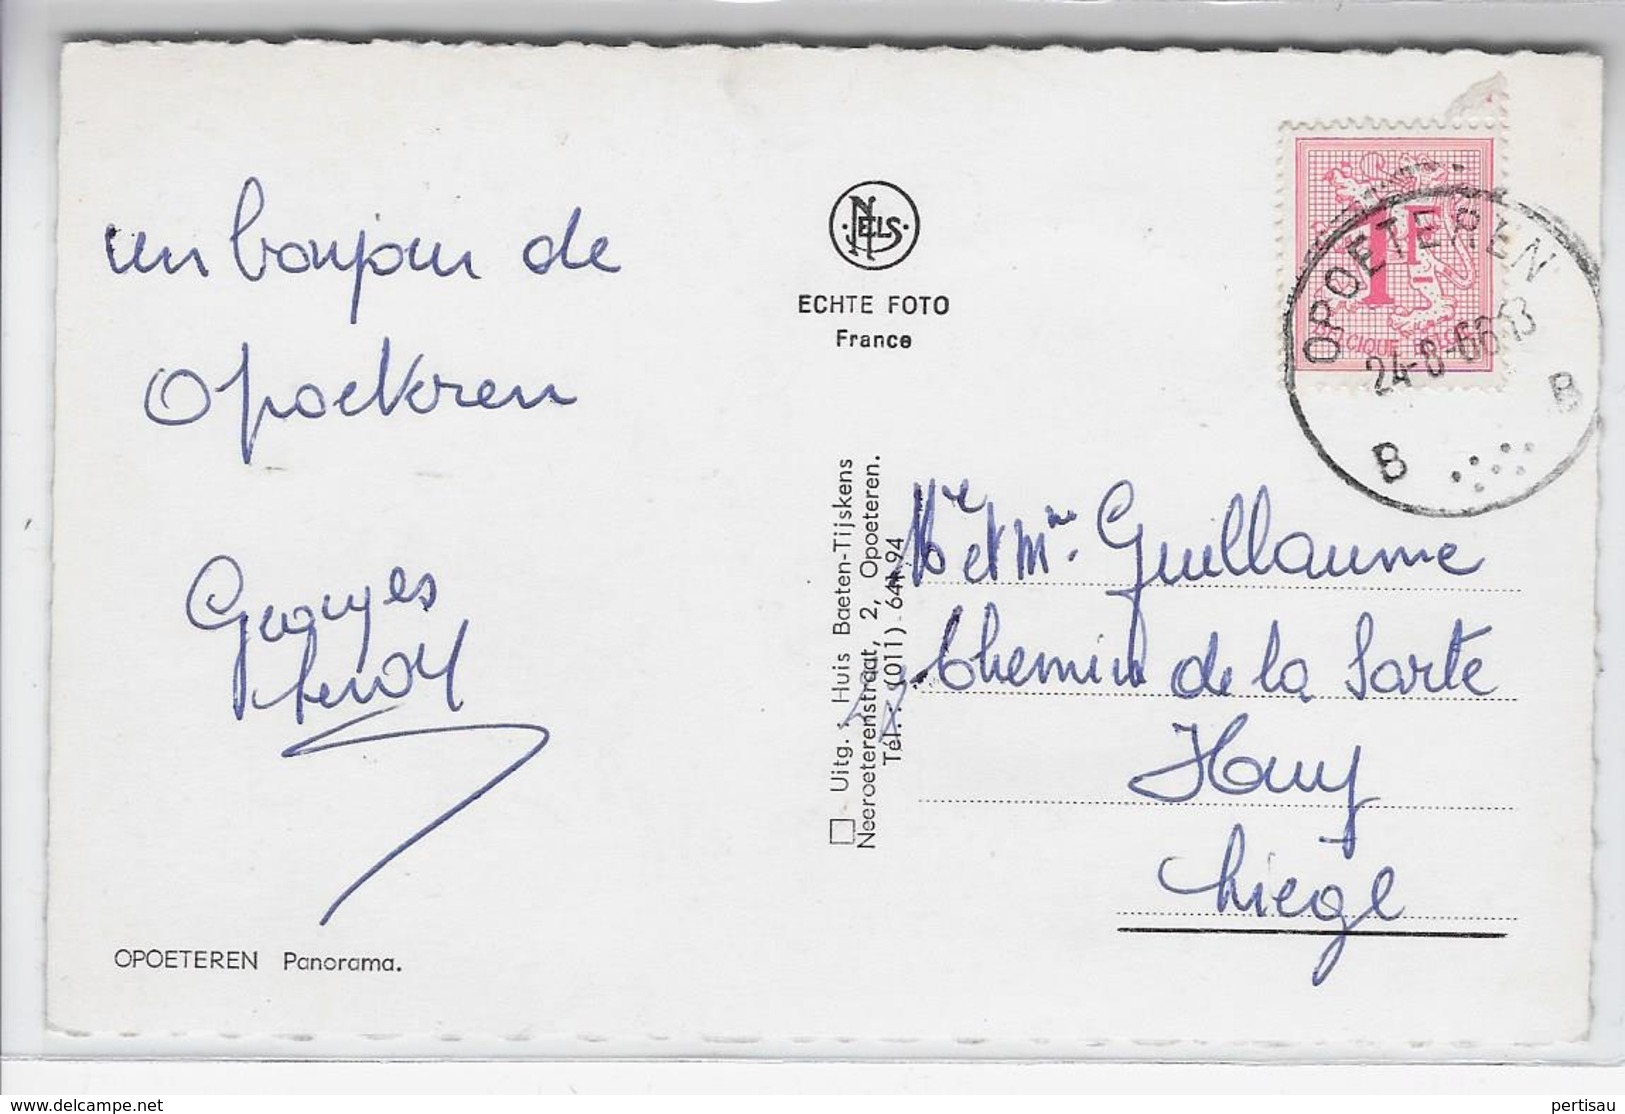 un bonjour de
Opoeteren
Georges
OPOETEREN Panorama.
NELS
ECHTE FOTO
France
Uitg. : Huis Baeten-Tijskens
Neeroeterenstraat, 2, Opoeteren.
Tél. : (011) 641.94
1F
BELGIQUE BELGIE
OPOETEREN
24-8-66 13
B B
Mr et Mme Guillaume
Chemin de la Sarte
Huy
Liège
delcampe.net
pertisau